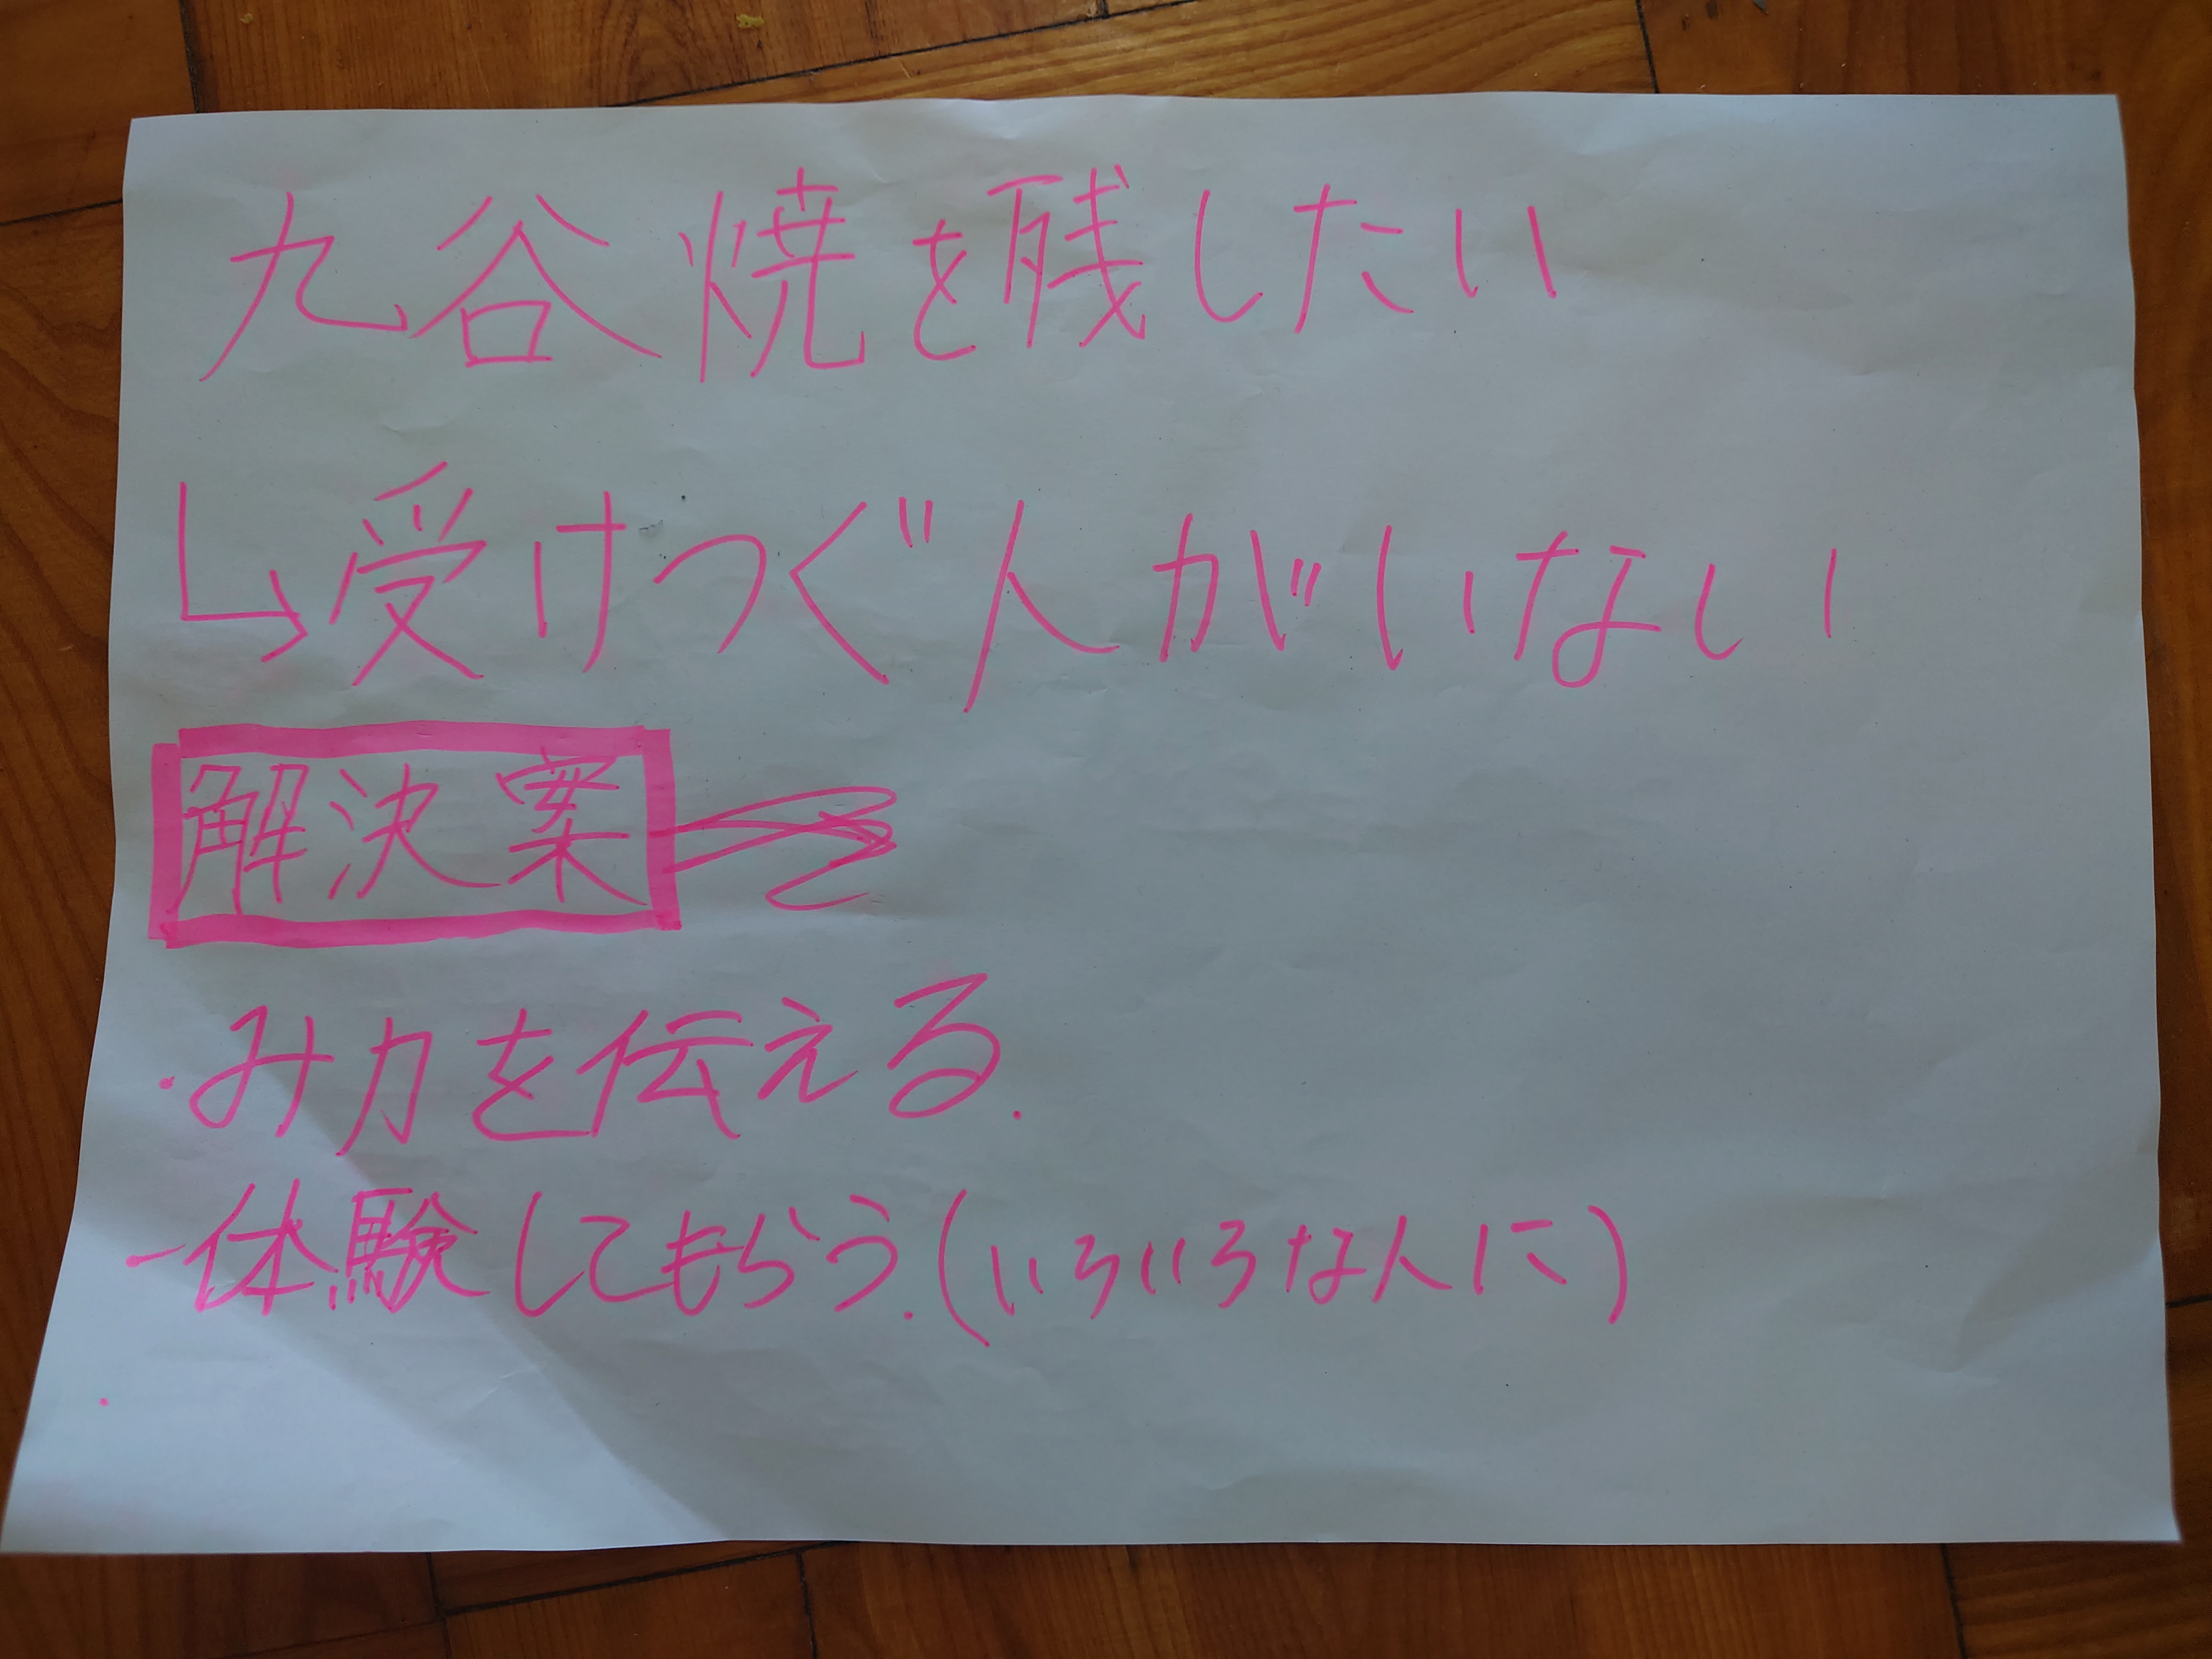 九谷焼を残したい
↳受けつぐ人がいない
解決案
・み力を伝える.
-体験してもらう.(いろいろな人に)
・